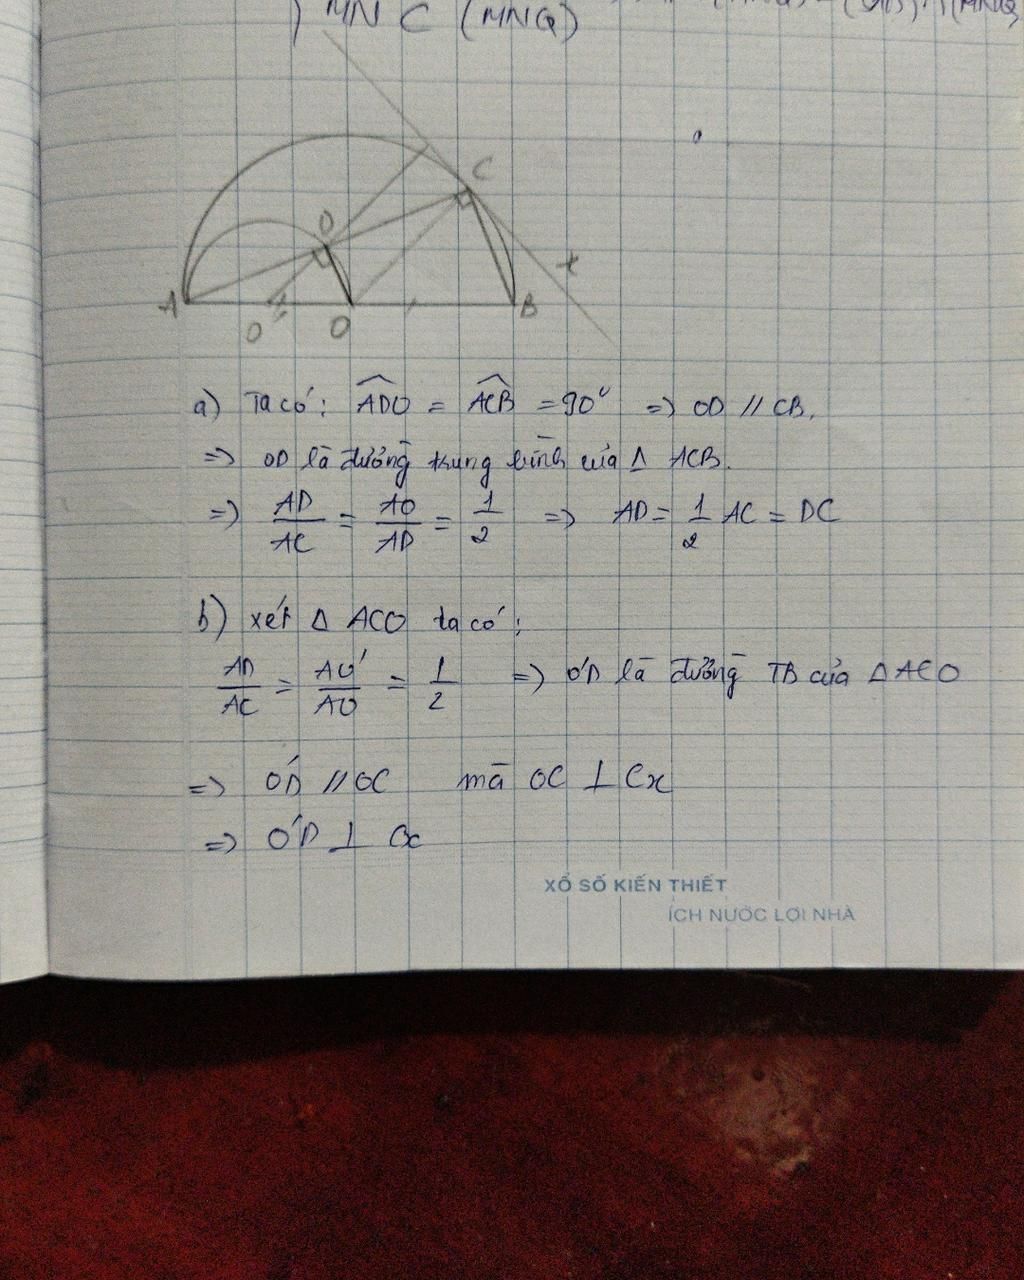 ) MN ⊂ (MNQ)
C
D
x
A
O'
O
B
a) Ta có: ADO = ACB = 90° => OD // CB.
=> OD là đường trung bình của Δ ACB.
=> AD/AC = AO/AD = 1/2 => AD = 1/2 AC = DC
b) xét Δ ACO ta có:
AD/AC = AO'/AO = 1/2 => O'D là đường TB của Δ ACO
=> O'D // OC mà OC ⊥ Cx
=> O'D ⊥ Cx
XỔ SỐ KIẾN THIẾT
ÍCH NƯỚC LỢI NHÀ